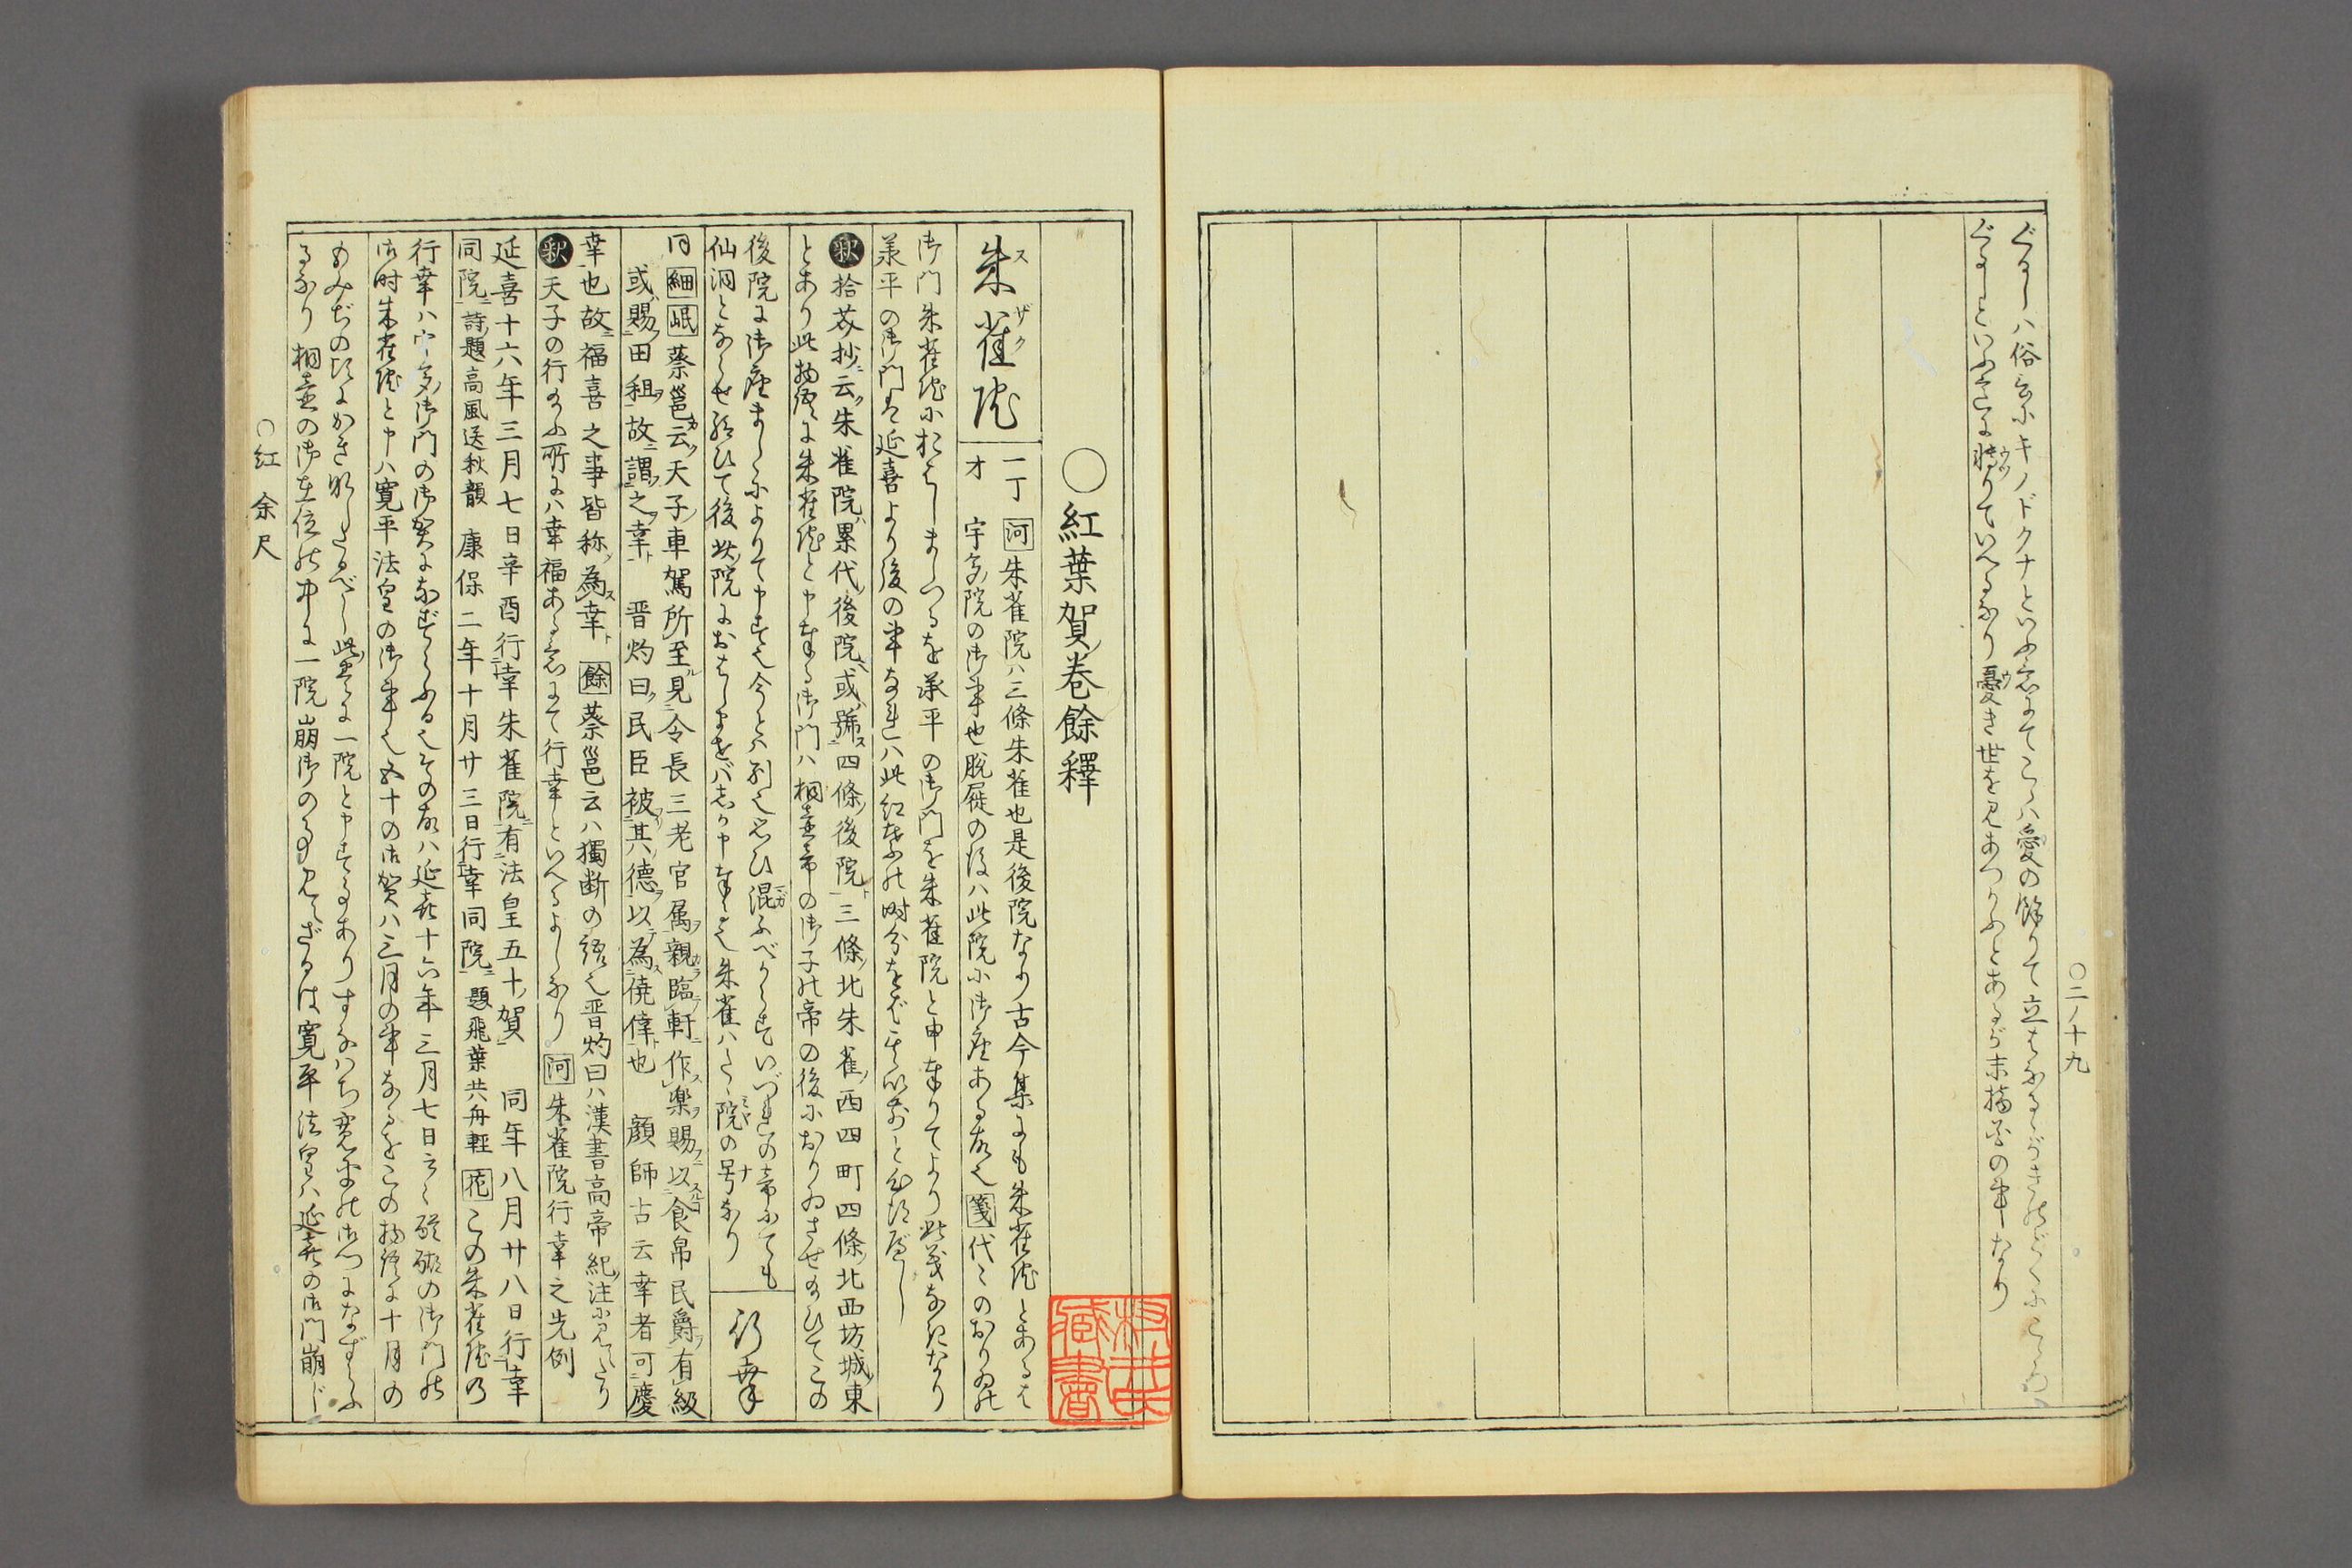 ぐるしハ俗言にキノドクナといふ意にてこゝハ愛の餘りて立はなるゝがきのどくに
ぐるしといふことに轉りていへるなり憂き世を見あつかふとあるが末摘花の事なり
○二ノ十九
○紅葉賀巻餘釋
朱雀院
一丁オ
河朱雀院ハ三條朱雀也是後院なり古今集にも朱雀院とあるは
宇多ノ院の御事也脱屣の後ハ此院に御座ある故也箋代々のおりゐの
御門朱雀院におはしましつるを承平の御門を朱雀院と申奉りてより此義なきになり
承平の御門は延喜より後の事なれハ此紅葉の賀の時分
釈拾芥抄ニ云ク朱雀院ハ累代ノ後院或ハ號ス四條ノ後院ト三條ノ北朱雀ノ西四町四條ノ北西坊城ノ東
とあり此物語に朱雀院と申奉る御門ハ桐壺帝の御子の帝の後におりゐさせ給ひてこの
後院に御座ましゝによりて申す也今とハ別也思ひ混ふべからずいづれの帝にても
仙洞とならせ給ひて後此ノ院におはしませバしか申奉る也朱雀ハたゞ院の号なり
行幸
同細岷蔡邕云ク天子ノ車駕所至見令長三老官属親臨軒作樂賜以食帛民爵有級
或ハ賜田租故ニ謂之幸ト 晋灼曰ク民臣被其德以為僥倖也 顔師古云幸者可慶
幸也故福喜之事皆称為幸ト餘蔡邕云ハ獨断の語也晋灼曰ハ漢書高帝紀ノ注に見えたり
釈天子の行給ふ所にハ幸福ある意にて行幸といへるよしなり河朱雀院行幸之先例
延喜十六年三月七日辛酉行幸朱雀院有法皇五十ノ賀 同年八月廿八日行幸
同院ニ詩題高風送秋韻 康保二年十月廿三日行幸同院ニ題飛葉共舟輕花この朱雀院の
行幸ハ宇多ノ御門の御賀になぞらふる也その故ハ延喜十六年三月七日云々醍醐の御門の
御時朱雀院と申ハ寛平法皇の御事也五十の御賀ハ三月の事なるをこの物語に十月の
もみぢの比にかきなしたるべし此巻に一院と申すことありすなはち寛平の御門になずらふ
るなり桐壺の御在位の中に一院崩御の事見えざるは寛平法皇ハ延喜の御門崩じ
○紅余尺